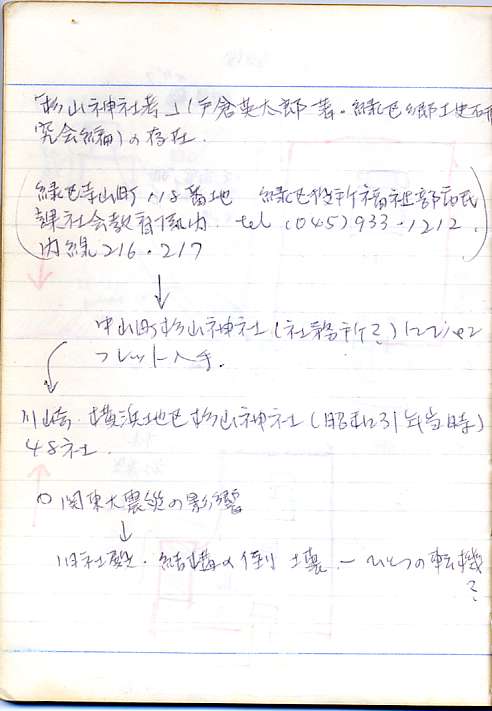 「杉山神社考」(戸倉英太郎著・緑区郷土史研
究会編)の存在.
(緑区寺山町118番地 緑区役所福祉部市民
課社会教育係内. tel (045)933・1212.
内線216・217)
↓
中山町杉山神社(社務所?)にて
フレット入手.
川崎・横浜地区杉山神社(昭和31年当時)
48社.
○関東大震災の影響
↓
旧社殿・結構の倒壊.ー ひとつの転機
?